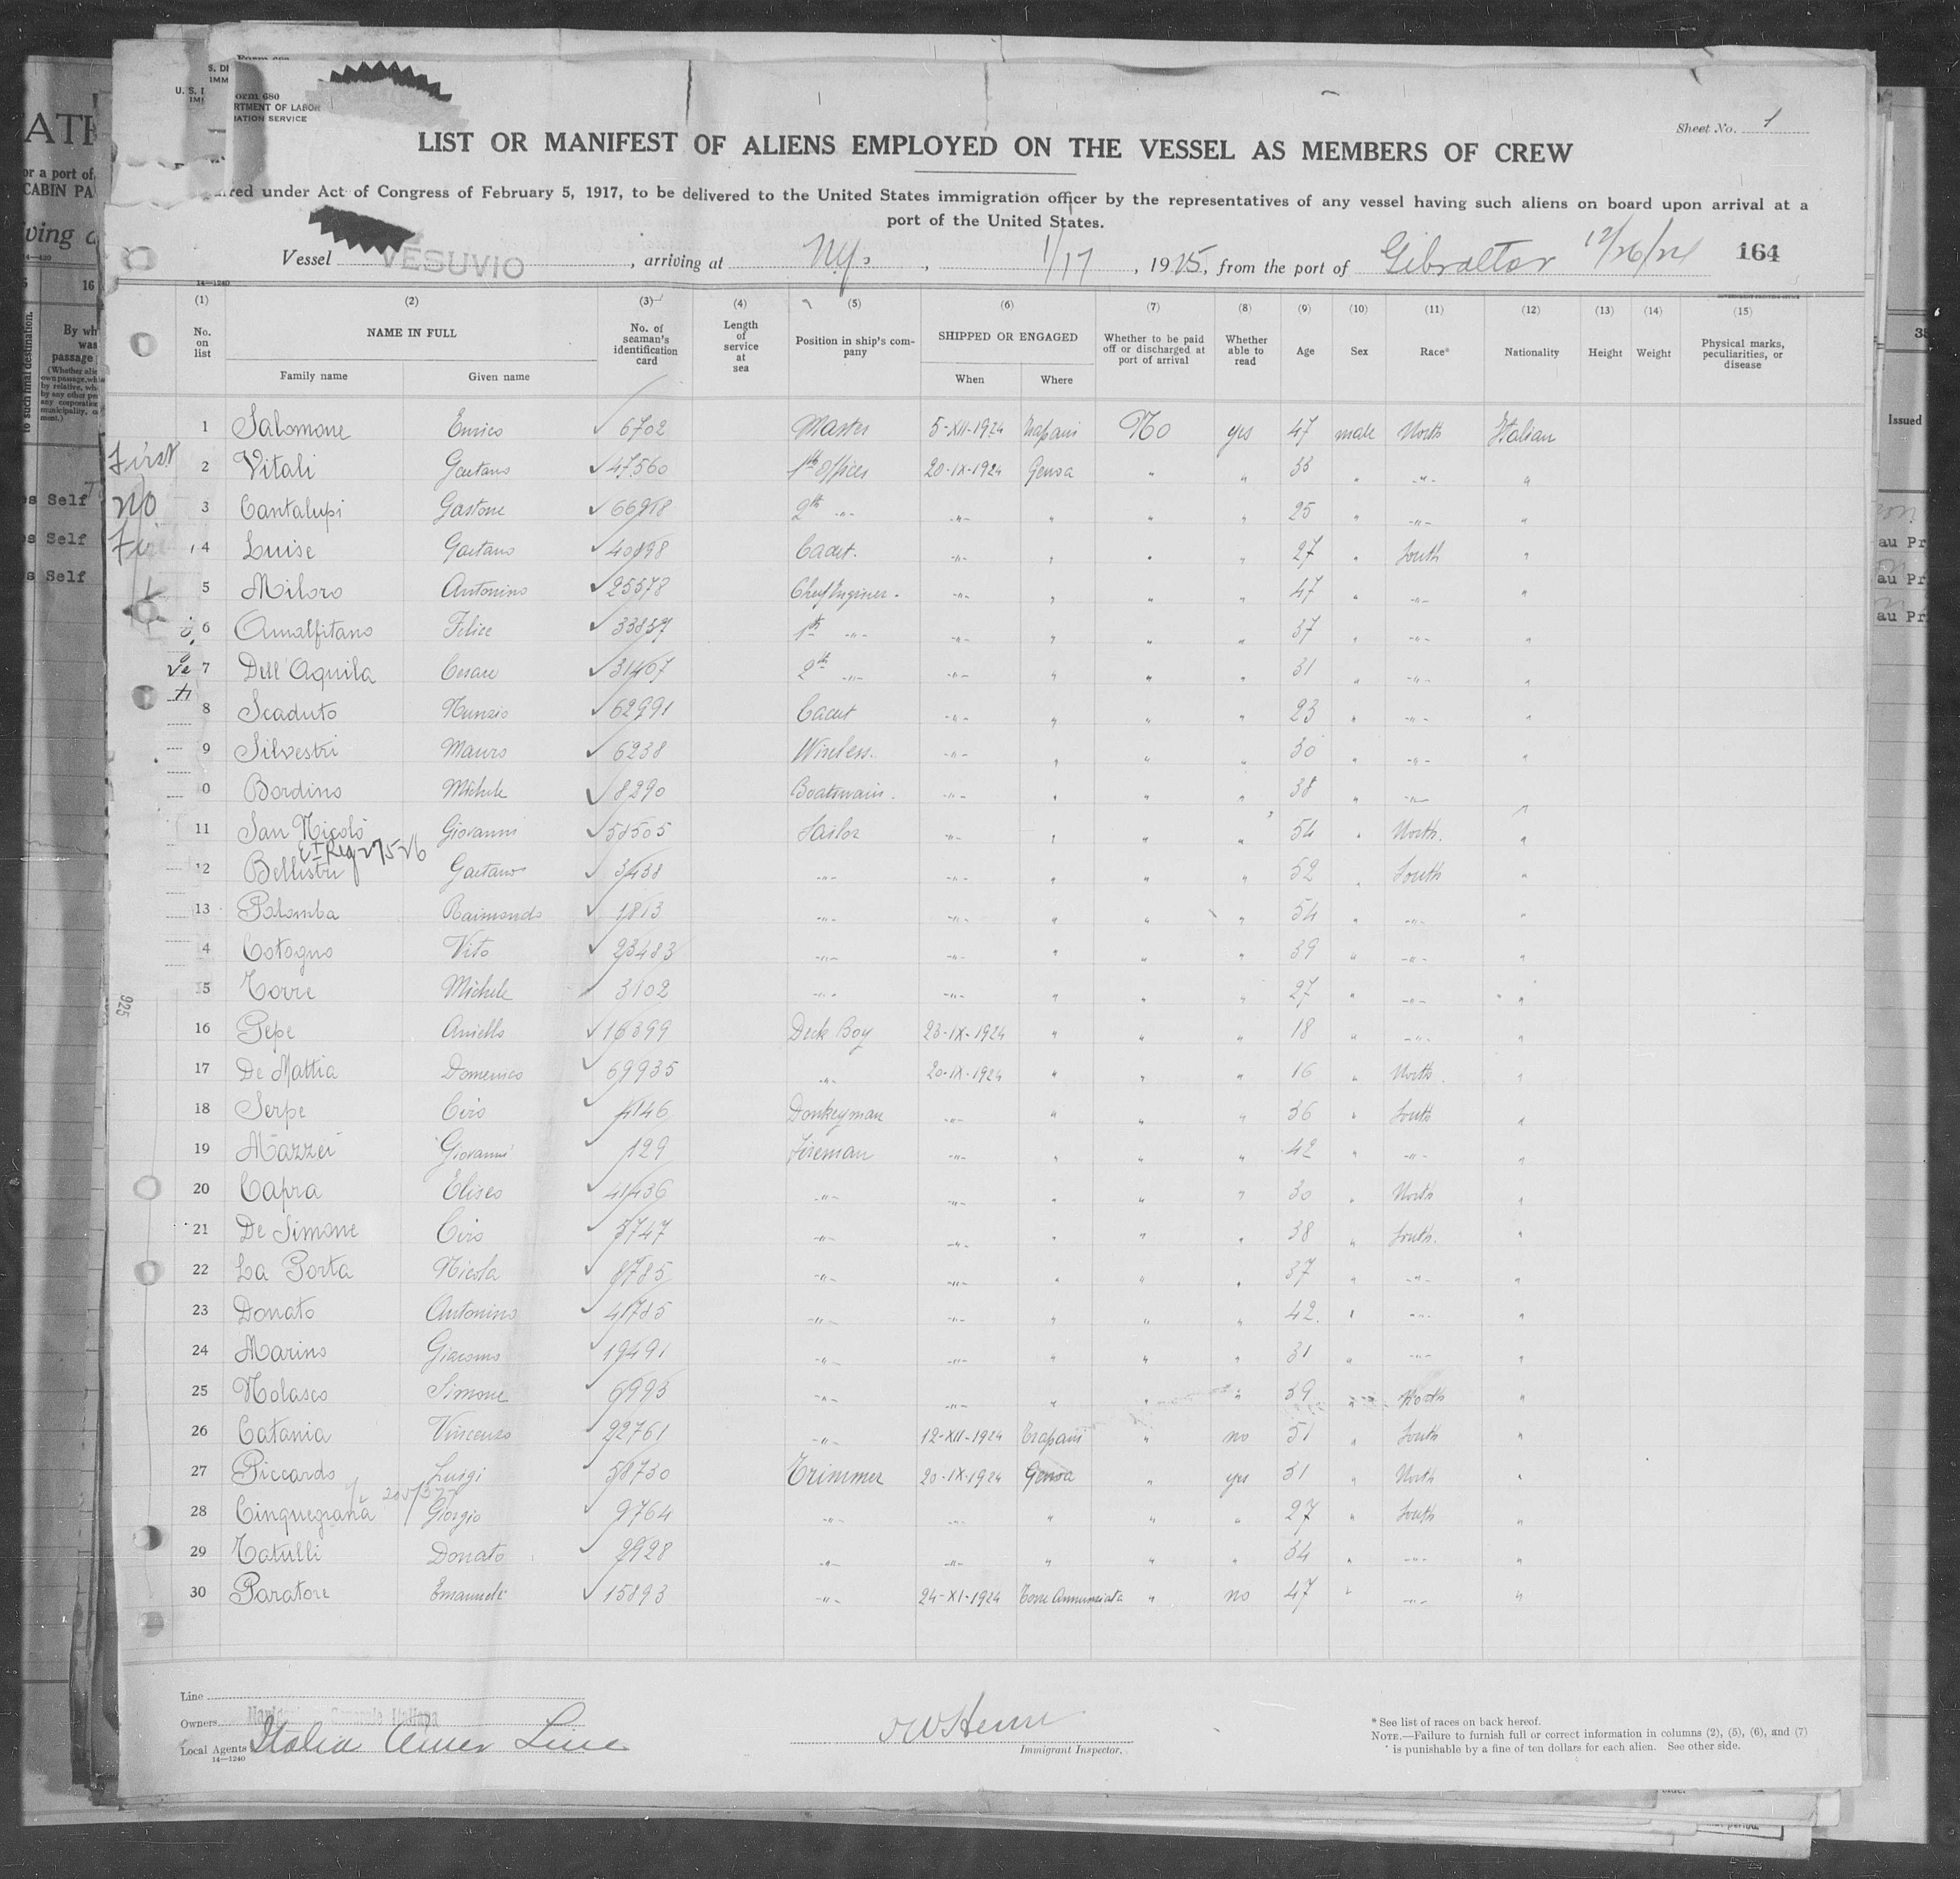 Form 680
U. S. DEPARTMENT OF LABOR
IMMIGRATION SERVICE
Sheet No. 1
LIST OR MANIFEST OF ALIENS EMPLOYED ON THE VESSEL AS MEMBERS OF CREW
under Act of Congress of February 5, 1917, to be delivered to the United States immigration officer by the representatives of any vessel having such aliens on board upon arrival at a
port of the United States.
Vessel VESUVIO, arriving at N.Y., 1/17, 1925, from the port of Gibraltar 12/26/24 164
14—1240
(1) (2) (3) (4) (5) (6) (7) (8) (9) (10) (11) (12) (13) (14) (15)
No. on list NAME IN FULL No. of seaman's identification card Length of service at sea Position in ship's company SHIPPED OR ENGAGED Whether to be paid off or discharged at port of arrival Whether able to read Age Sex Race* Nationality Height Weight Physical marks, peculiarities, or disease
Family name Given name When Where
1 Salomone Enrico 6702 Master 5-XII-1924 Trapani No yes 47 male North Italian
2 Vitali Gaetano 47560 1th Officer 20-IX-1924 Genoa " " 33 " -"- "
3 Cantalupi Gastone 66918 2th -"- -"- " " " 25 " -"- "
4 Luise Gaetano 40898 Cadet. -"- " " " 27 " South "
5 Miloro Antonino 25578 Chief Enginer. -"- " " " 47 " -"- "
6 Amalfitano Felice 33857 1th -"- -"- " " " 37 " -"- "
7 Dell'Aquila Cesare 31467 2th -"- -"- " " " 31 " -"- "
8 Scaduto Nunzio 62991 Cadet -"- " " " 23 " -"- "
9 Silvestri Mauro 6238 Wireless. -"- " " " 30 " -"- "
0 Bordino Michele 8290 Boatswain. -"- " " " 38 " -"- "
11 San Nicolò Giovanni 58505 Sailor -"- " " " 54 " North. "
12 Bellistri Gaetano 3438 -"- -"- " " " 52 " South "
13 Palomba Raimondo 1813 -"- -"- " " " 54 " -"- "
4 Cotogno Vito 23483 -"- -"- " " " 39 " -"- "
5 Torre Michele 3102 -"- -"- " " " 27 " -"- "
16 Pepe Aniello 16399 Deck Boy 23-IX-1924 " " " 18 " -"- "
17 De Mattia Domenico 69935 -"- 20-IX-1924 " " " 16 " North. "
18 Serpe Ciro 4146 Donkeyman -"- " " " 36 " South "
19 Mazzei Giovanni 129 Fireman -"- " " " 42 " -"- "
20 Capra Eliseo 41436 -"- -"- " " " 30 " North "
21 De Simone Ciro 5747 -"- -"- " " " 38 " South. "
22 La Porta Nicola 8785 -"- -"- " " " 37 " -"- "
23 Donato Antonino 41785 -"- -"- " " " 42. " -"- "
24 Marino Giacomo 19491 -"- -"- " " " 31 " -"- "
25 Nolasco Simone 6993 -"- -"- " " " 39 " North "
26 Catania Vincenzo 22761 -"- 12-XII-1924 Trapani " no 51 " South "
27 Piccardo Luigi 58730 Trimmer 20-IX-1924 Genoa " yes 31 " North "
28 Cinquegrana Giorgio 9764 -"- -"- " " " 27 " South "
29 Tatulli Donato 2928 -"- -"- " " " 34 " -"- "
30 Paratore Emanuele 15893 -"- 24-XI-1924 Torre Annunziata " no 47 " -"- "
Line
Owners
Local Agents Italia Amer Line
14—1240
Immigrant Inspector.
* See list of races on back hereof.
NOTE.—Failure to furnish full or correct information in columns (2), (5), (6), and (7)
is punishable by a fine of ten dollars for each alien. See other side.